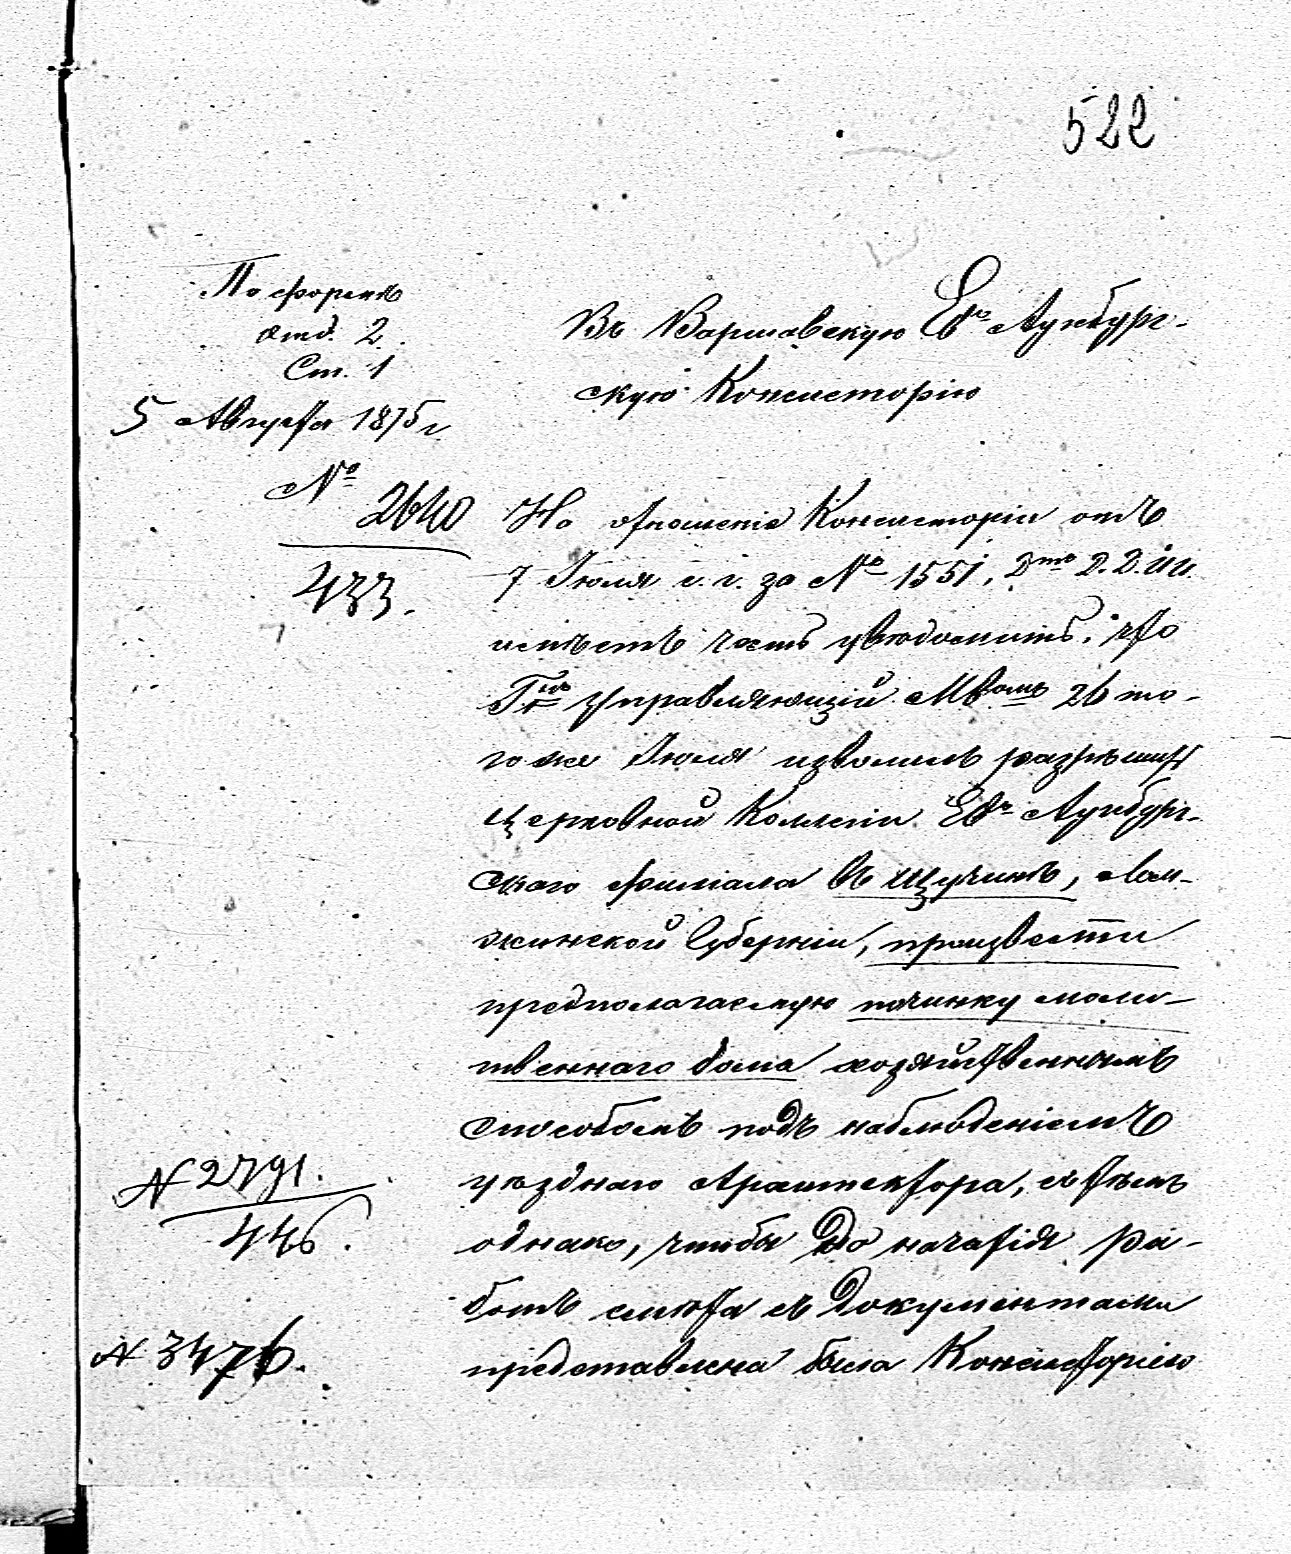 522
По формѣ
отд. 2.
Ст. 1
5 Августа 1875 г.
№ 2640
433.
Въ Варшавскую Ев. Аугсбург-
скую Консисторію
На отношеніе Консисторіи отъ
7 Іюля с. г. за № 1551, Д.Д.И.И.
имѣетъ честь увѣдомить, что
Гнъ Управляющій Мвомъ 26 то-
го же Іюля изволилъ разрѣшить
Церковной Коллегіи Ев. Аугсбург-
скаго филіала въ Щучинѣ, Лом-
жинской Губерніи, произвести
предполагаемую починку моли-
твеннаго дома хозяйственнымъ
способомъ подъ наблюденіемъ
уѣзднаго Архитектора, съ тѣмъ
однако, чтобы до начатія ра-
ботъ смѣта съ документами
представлена была Консисторіею
N 2791.
446.
N 3476.